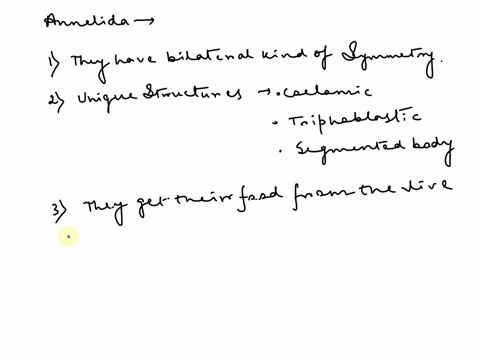 Annelida →
1) They have bilateral kind of Symmetry.
2) Unique Structures → • Coelamic
• Triphoblastic
• Segmented body
3) They get their food from the live